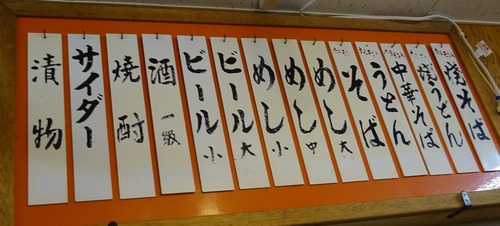 焼そば
焼うどん
中華そば
うどん
そば
めし大
めし中
めし小
ビール大
ビール小
酒 一級
焼酎
サイダー
漬物